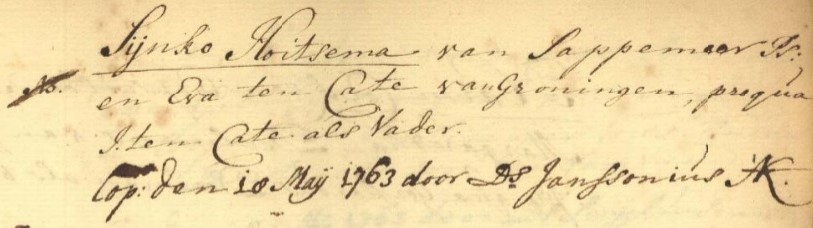 Sijnko Hoitsema van Sappemeer Ps:
No. en Eva ten Cate van Groningen, proqua
J. ten Cate als Vader.
Cop: den 18 Maÿ 1763 door Ds Janssonius AK.